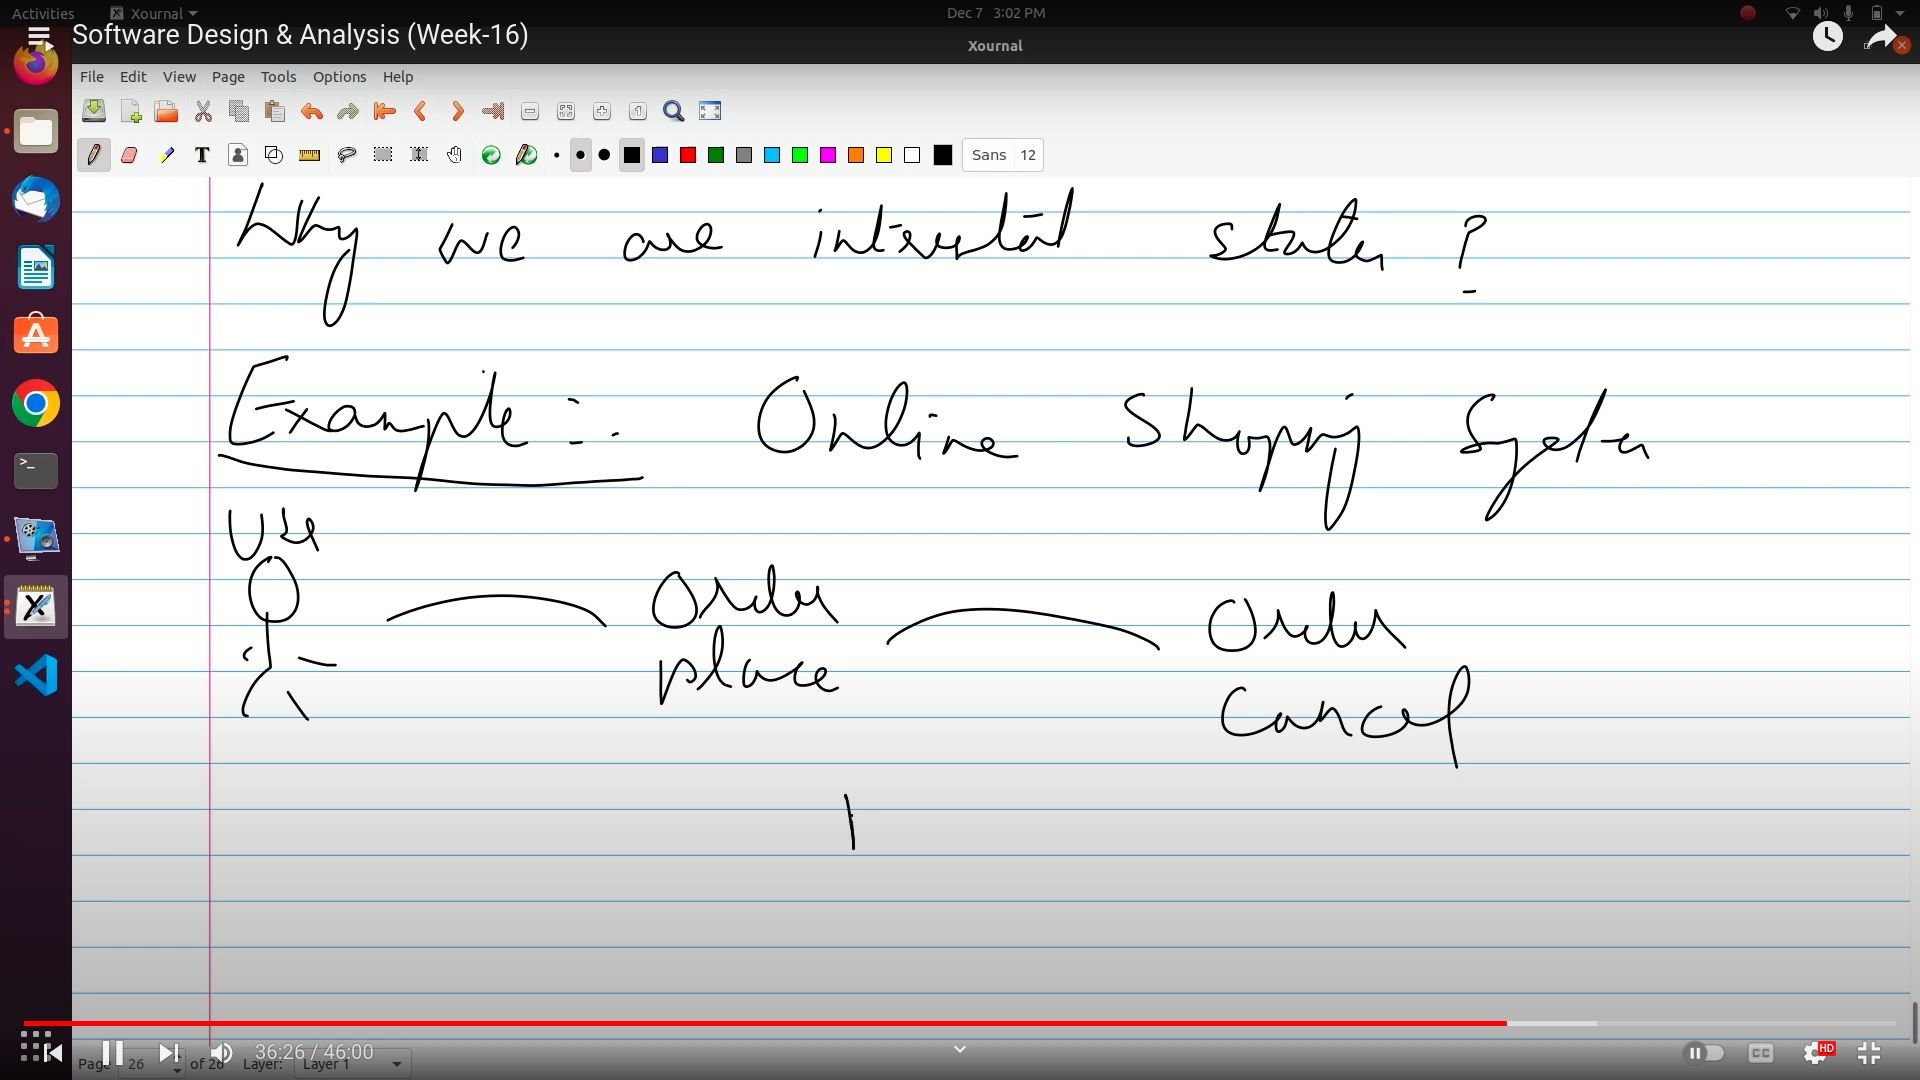 Activities Xournal Dec 7 3:02 PM
Software Design & Analysis (Week-16)
Xournal
File Edit View Page Tools Options Help
T Sans 12
Why we are interested states ?
Example :- Online Shopping System
User
Order Order
place Cancel
36:26 / 46:00 CC HD
Page 26 of 26 Layer: Layer 1